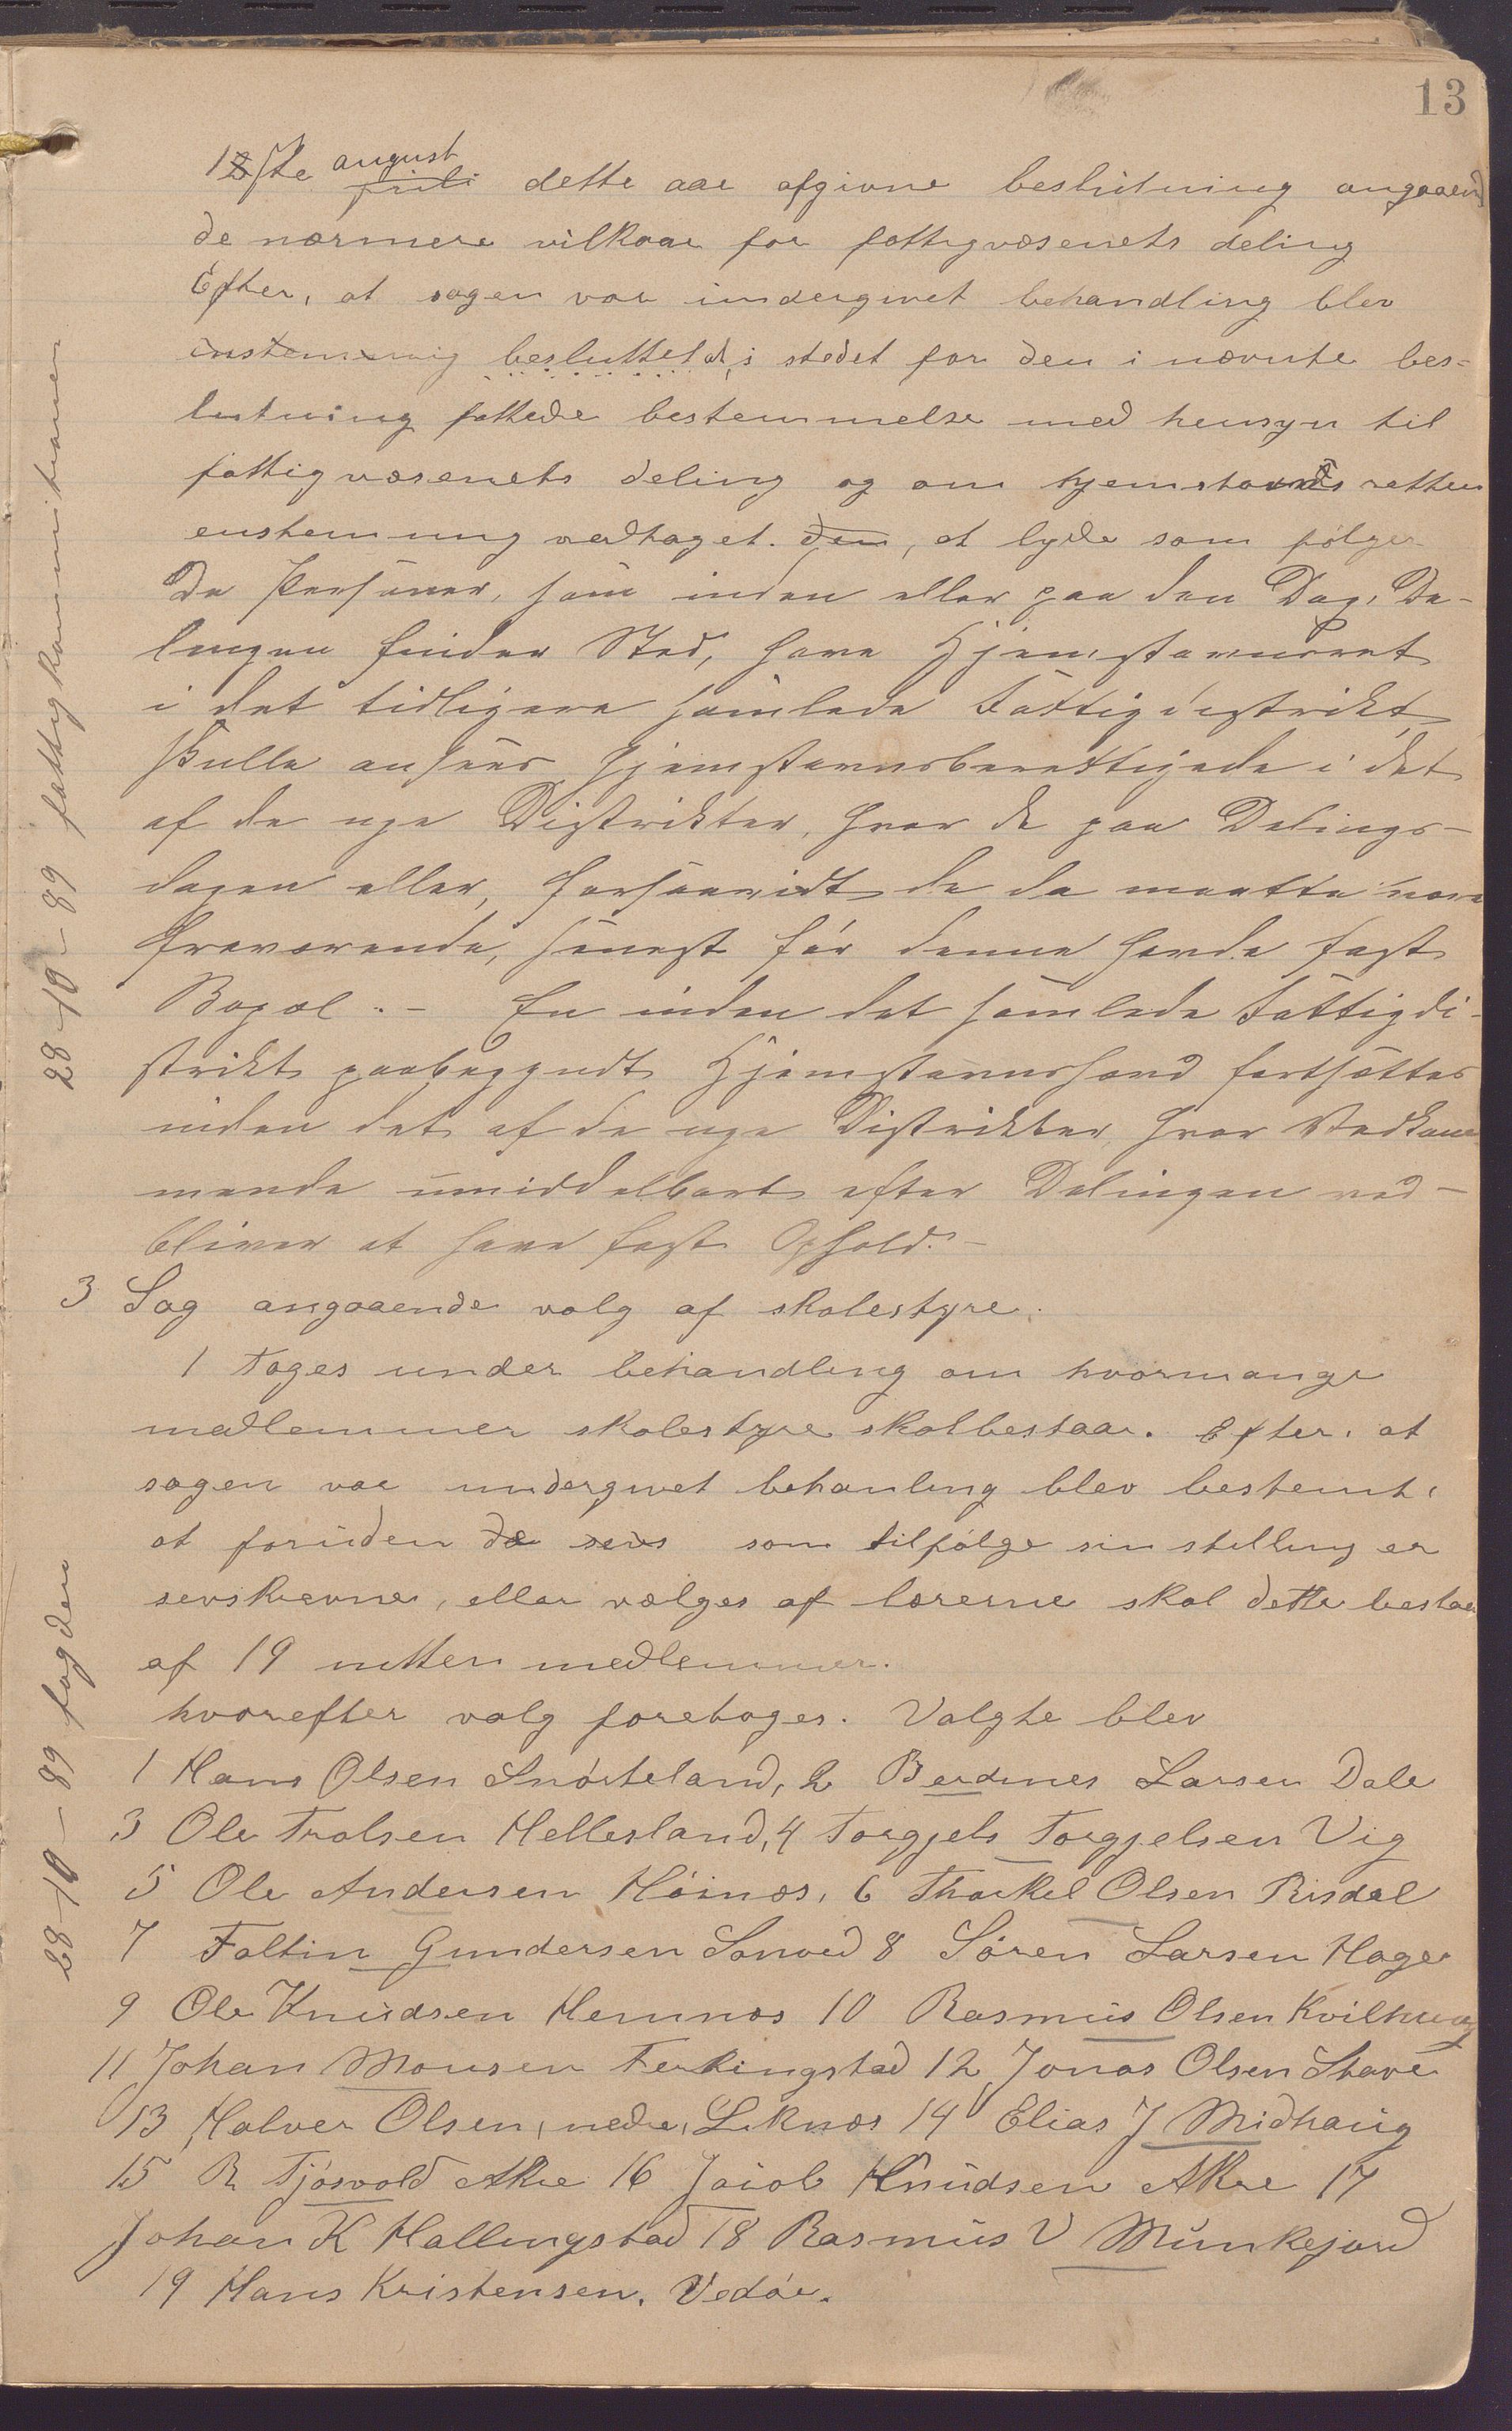 13
1ste august juli dette aar afgivne beslutning angaaend
de nærmere vilkaar for fattigvæsenets deling
Efter, at sagen var undergivet behandling blev
enstemmig besluttet at, i stedet for den i nævnte bes-
lutning fattede bestemmelse med hensyn til
fattigvæsenets deling og om hjemstavnsretten
enstemmig vedtaget. den, at lyde som følger
De Personer, som inden eller paa den Dag, De-
lingen finder Sted, have Hjemstavnsret
i det tidligere samlede Fattigdistrikt,
skulle ansees hjemstavnsberettigede i det
af de nye Distrikter, hvor de paa Delings-
dagen eller, forsaavidt de da maatte være
fraværende, senest før denne havde fast
Bopæl. - En inden det samlede Fattigdi-
strikt paabegyndt Hjemstavnshævd fortsættes
inden det af de nye Distrikter, hvor Vedkom
mende umiddelbart efter Delingen ved-
bliver at have fast Ophold. -
3 Sag angaaende valg af skolestyre.
1 Tages under behandling om hvormange
medlemmer skolestyre skal bestaar. Efter, at
sagen var undergivet behanling blev bestemt,
at foruden de som tilfølge sin stilling er
servskrevne, eller vælges af lærerne skal dette bestaa
af 19 nitten medlemmer.
hvorefter valg foretoges. Valgte blev
1 Hans Olsen Snørteland, 2 Berdines Larsen Dale
3 Ole Trolsen Hellesland, 4 Torgjels Torgjelsen Vig
5 Ole Andersen Høinæs, 6 Thorkel Olsen Risdal
7 Foltin Gundersen Sonved 8 Søren Larsen Hage
9 Ole Knudsen Hemnæs 10 Rasmus Olsen Kvilhaug
11 Johan Monsen Ferkingstad 12 Jonas Olsen Stave
13 Halver Olsen, nedre, Liknæs 14 Elias J Midhaug
15 R Tjøsvold Akre 16 Jacob Knudsen Akre 17
Johan K Hallingstad 18 Rasmus V Munkejord
19 Hans Kristensen. Vedøe.
28-10-89 fattigkommisioner
28-10-89 fogden